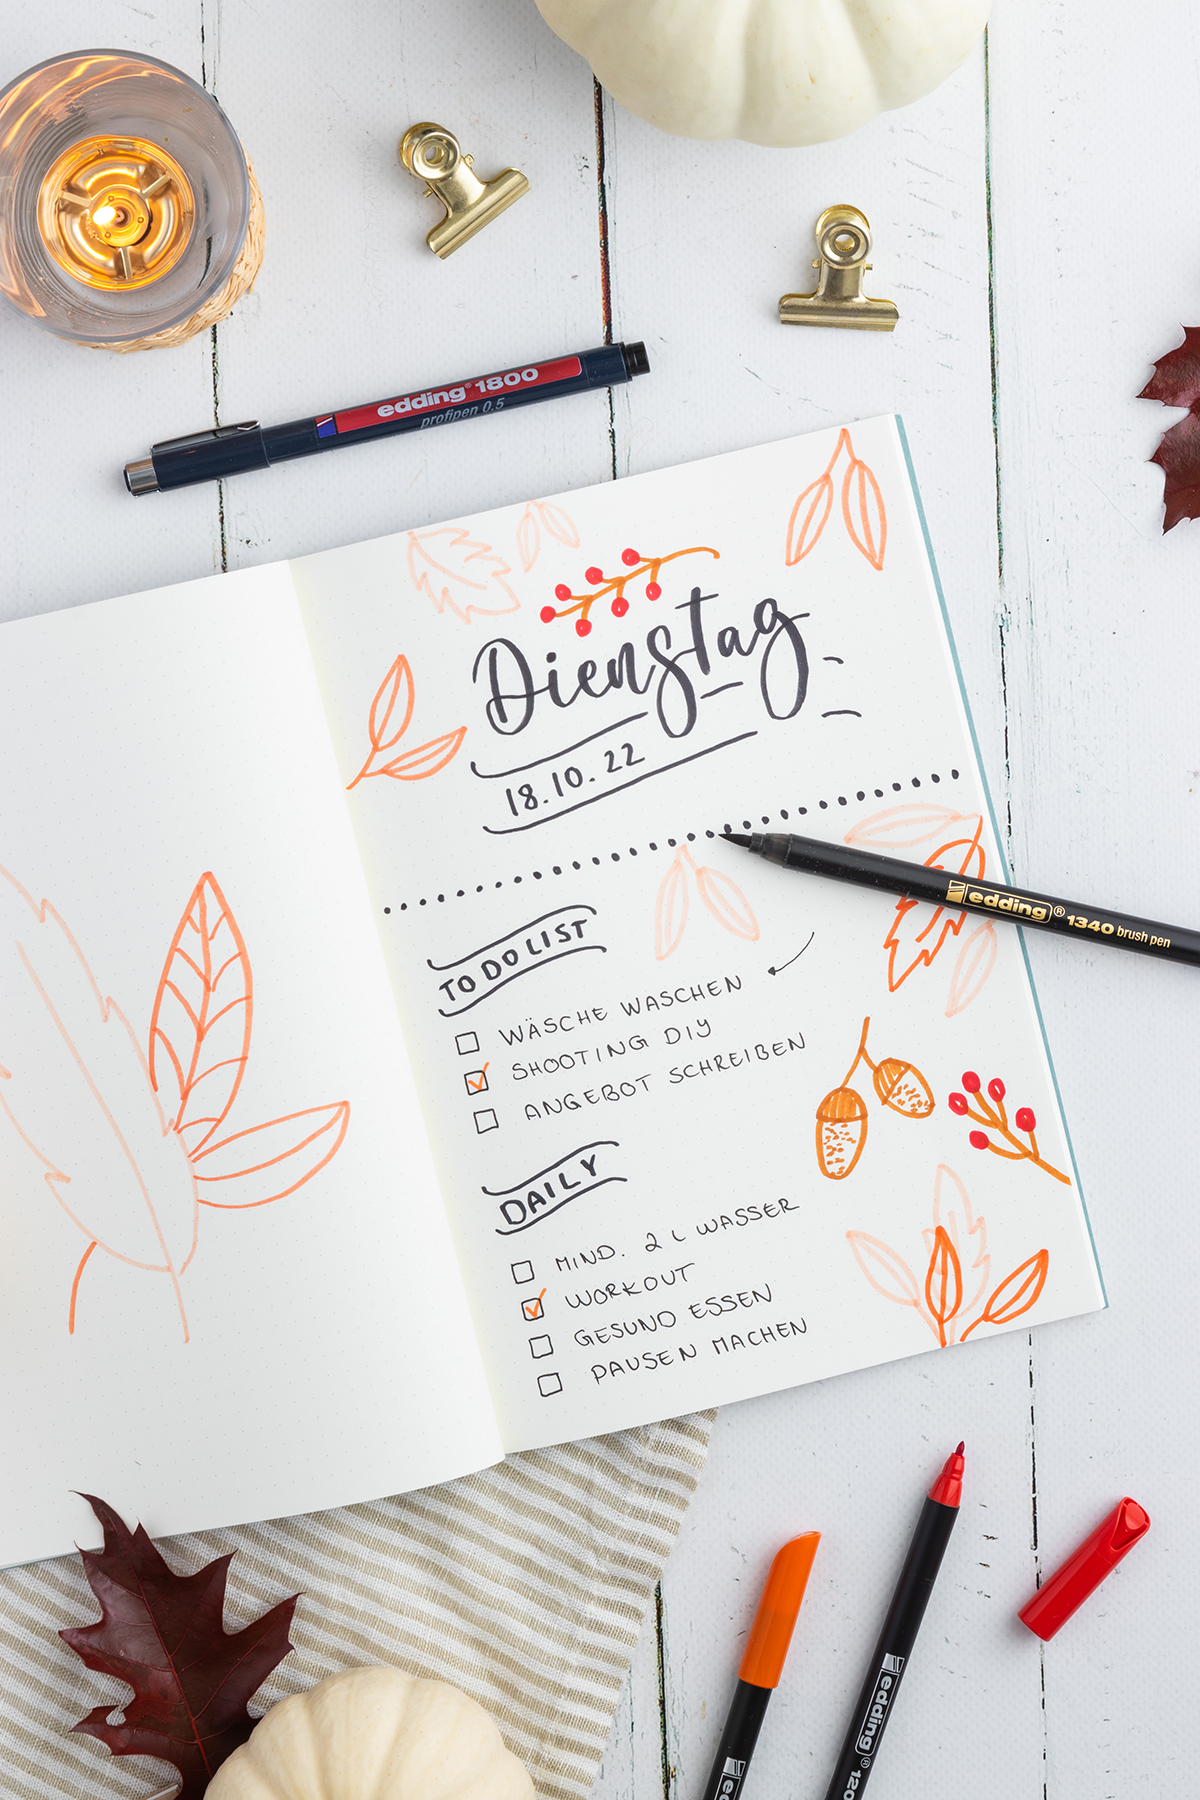 edding® 1800
profipen 0.5
Dienstag
18.10.22
edding® 1340 brush pen
TO DO LIST
WÄSCHE WASCHEN
SHOOTING DIY
ANGEBOT SCHREIBEN
DAILY
MIND. 2 L WASSER
WORKOUT
GESUND ESSEN
PAUSEN MACHEN
edding® 120
edding